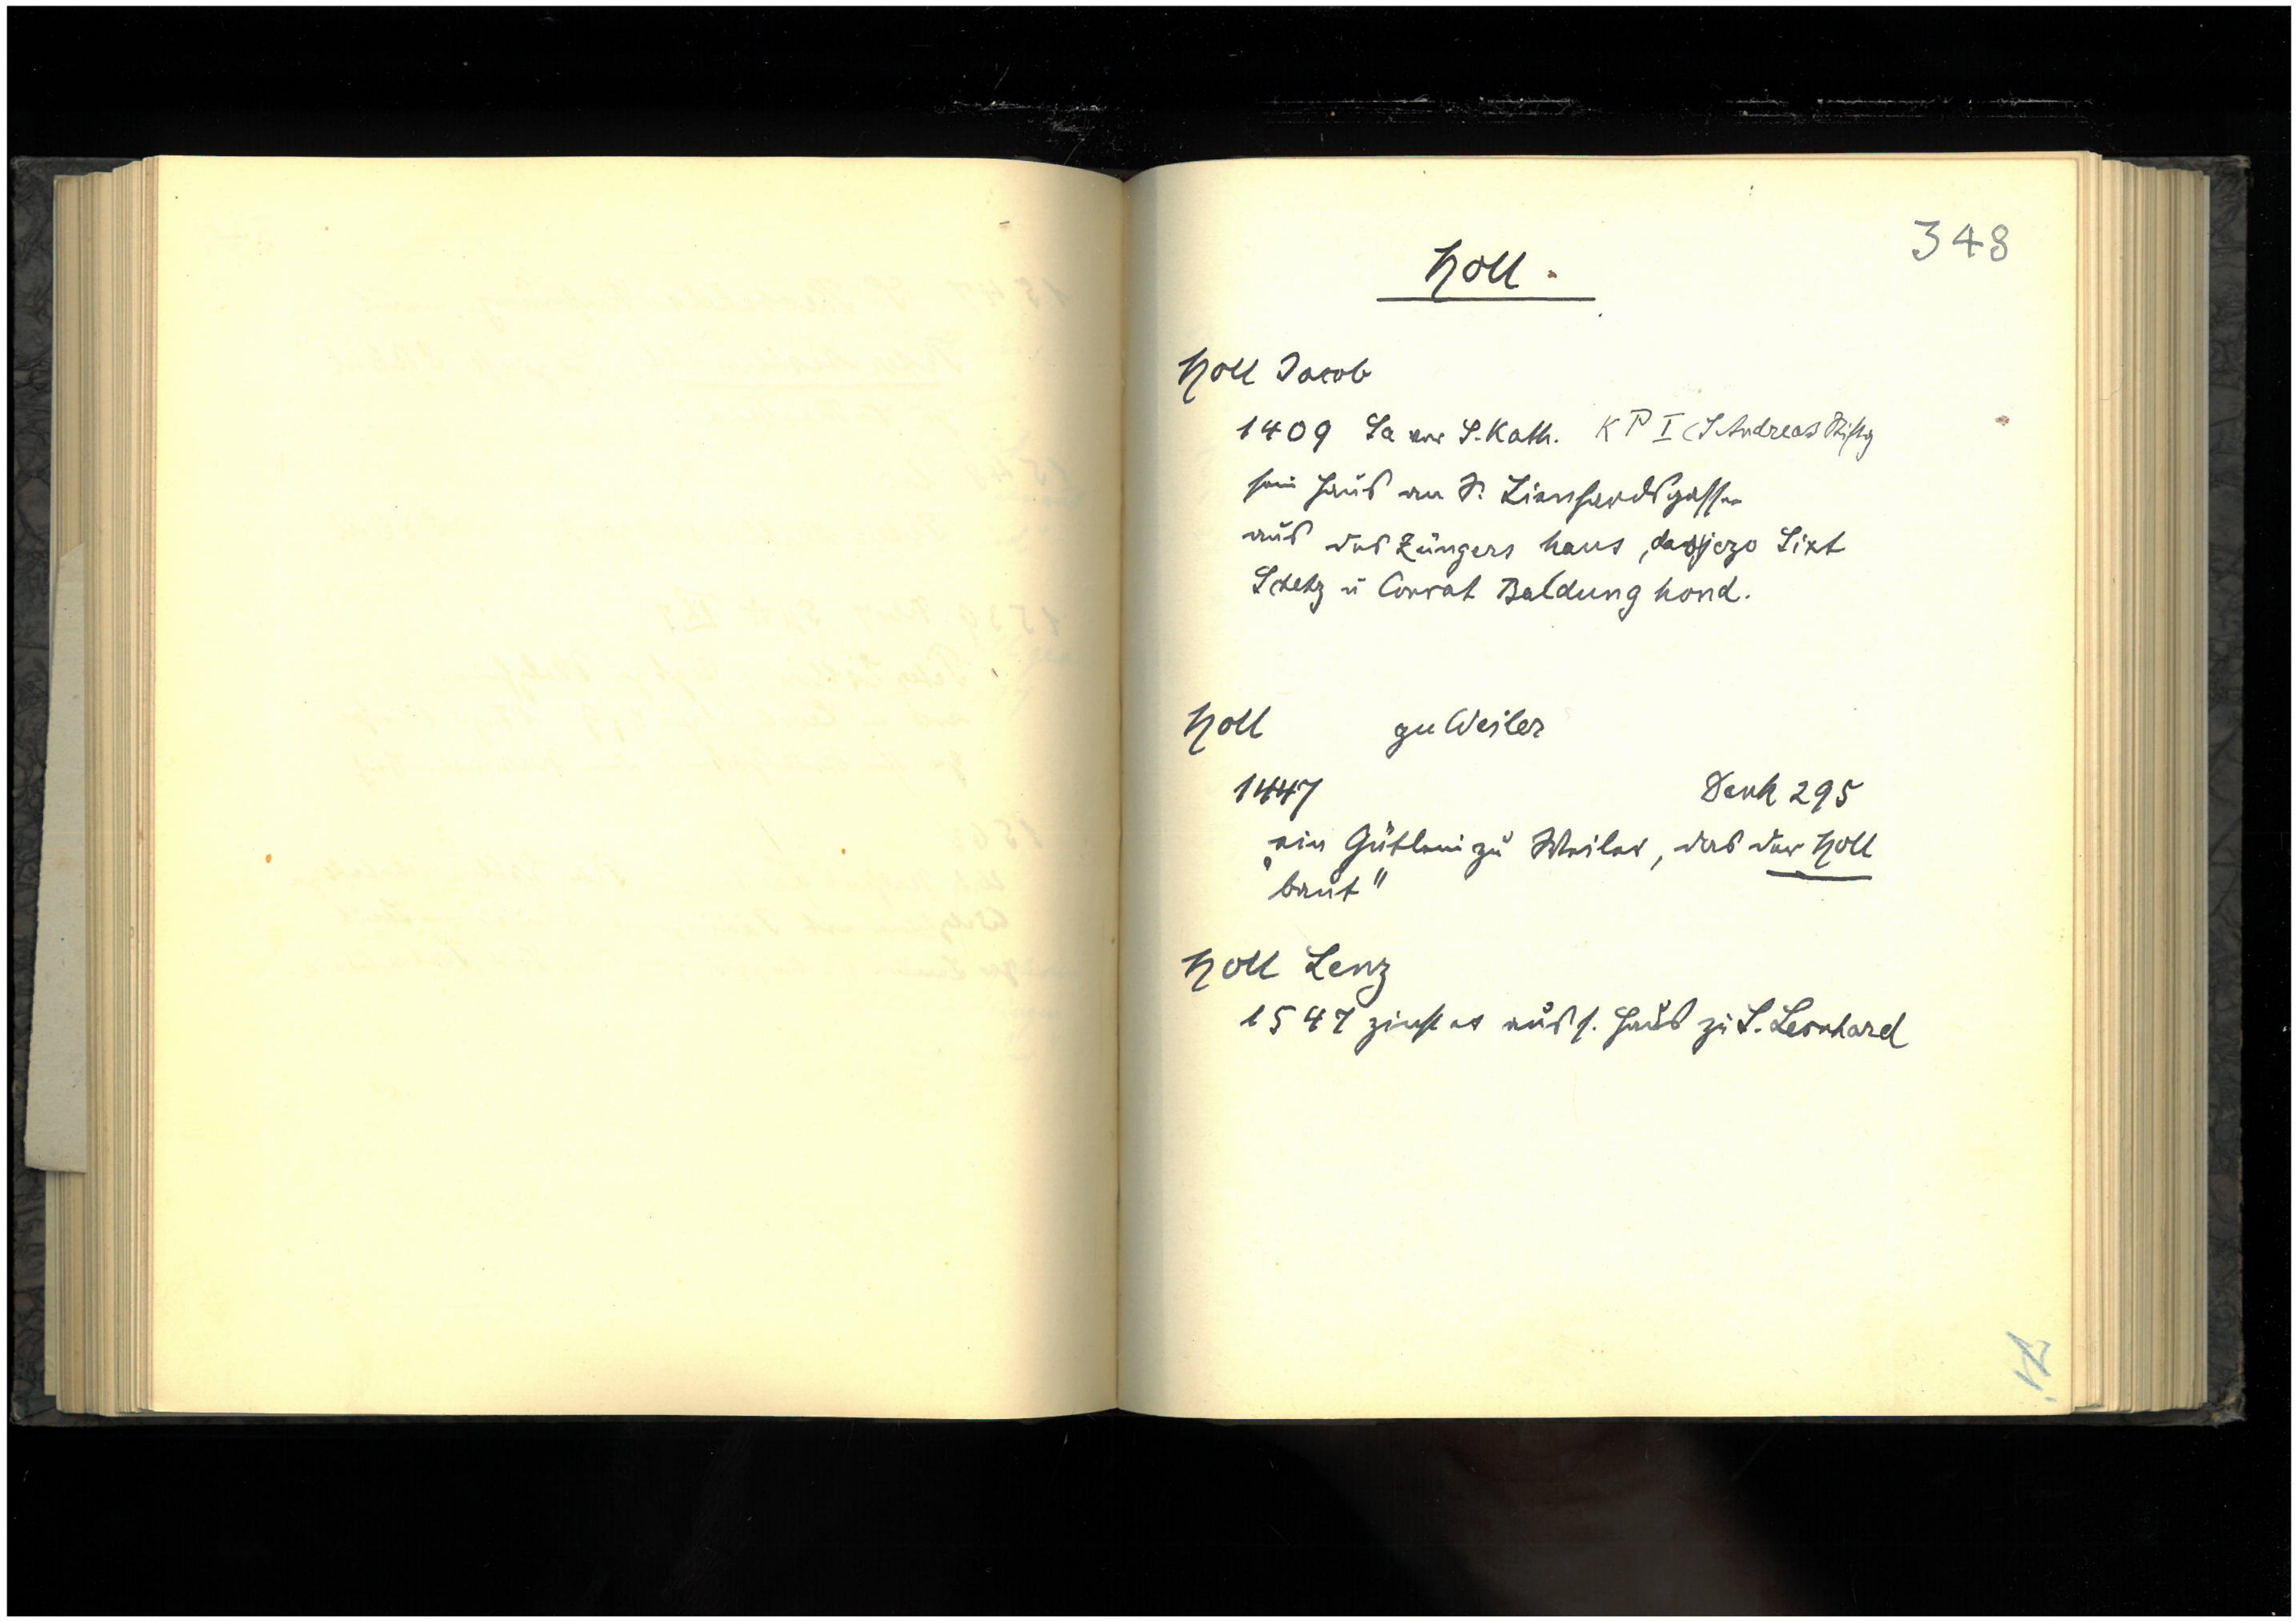 348
Holl.
Holl Jacob
1409 Sa vor S. Kath. KP I (S Andreas Stiftg
sein Haus an St. Lienhardsgassen
aus des Züngers haus, das jezo Sixt
Schetz u Conrat Baldung hond.
Holl zu Weiler
1447 Denk 295
„ein Gütlein zu Weiler, das der Holl
baut"
Holl Lenz
1547 zinst er aus s. Haus zu S. Leonhard